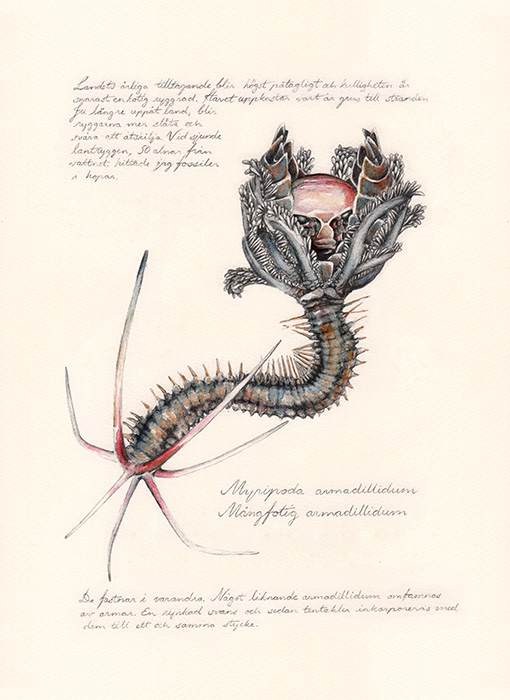 Landets årliga tilltagande blir högst påtagligt och kulligheten är
snarast en kotig ryggrad. Havet uppkastar vart år grus till stranden
Ju längre uppåt land, blir
ryggarna mer släta och
svåra att åtskilja. Vid sjunde
lantryggen, 50 alnar från
vattnet hittade jag fossiler
i hopar.
Myripoda armadillidum
Mångfotig armadillidum
De fastnar i varandra. Något liknande armadillidum omfamnas
av armar. En rynkad svans och sedan tentakler inkorporeras med
dem till ett och samma stycke.